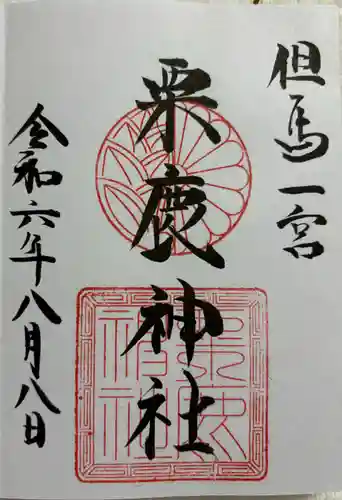 但馬一宮
粟鹿神社
令和六年八月八日